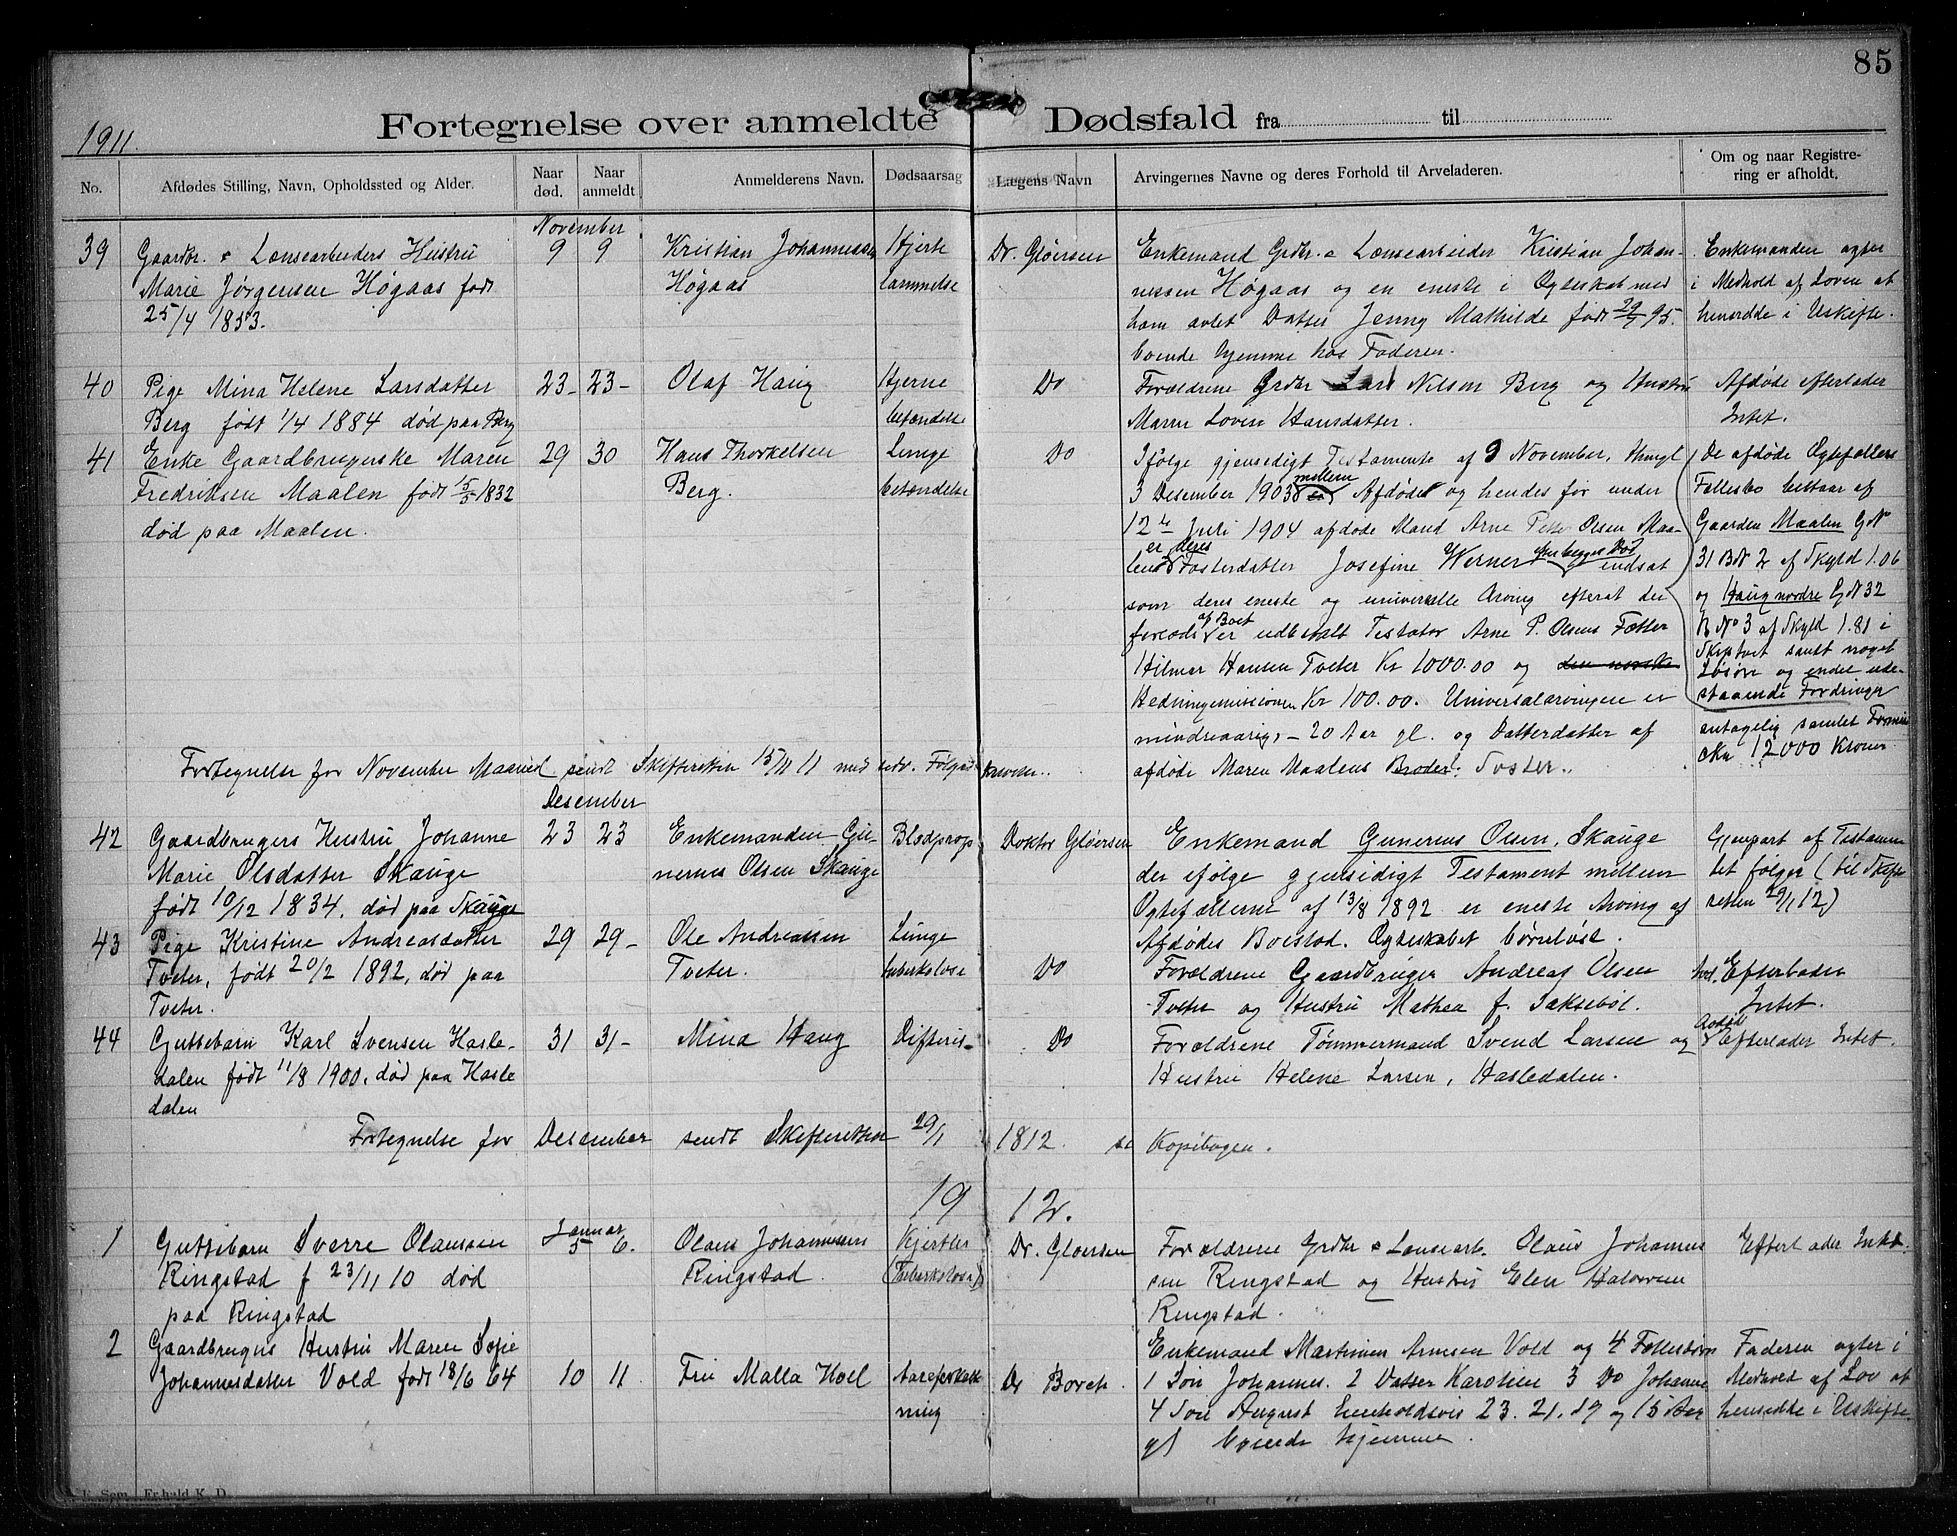 85
1911.
Fortegnelse over anmeldte Dødsfald fra til
No.
Afdødes Stilling, Navn, Opholdssted og Alder.
Naar død.
Naar anmeldt
Anmelderens Navn.
Dødsaarsag
Lægens Navn
Arvingernes Navne og deres Forhold til Arveladeren.
Om og naar Registre-
ring er afholdt.
November
39 Gaardbr. & Lensearbeiders Hustru
Marie Jørgensen Høgaas født
25/4 1853.
9 9
Kristian Johannessen
Høgaas
Hjerte
lammelse
Dr. Gløersen
Enkemand Grdbr. & Lensearbeider Kristian Johan-
nessen Høgaas og en eneste i Ægteskab med
ham avlet Datter Jenny Mathilde født 29/7 95.
boende hjemme hos Faderen.
Enkemanden agter
i Medhold af Loven at
hensidde i Uskifte.
40 Pige Mina Helene Larsdatter
Berg født 1/4 1884 død paa Berg
23- 23-
Olaf Haug
Hjerne
betændelse
Do
Forældrene Grdbr Lars Nilsen Berg og Hustru
Maren Lovise Hansdatter.
Afdøde efterlader
Intet.
41 Enke Gaardbrugerske Maren
Fredriksen Maalen født 15/5 1832
død paa Maalen.
29 30
Hans Thorkelsen
Berg.
Lunge
betændelse
Do
Ifølge gjensidigt Testamente af 9 November, thingl
3 Desember 1903 mellem Afdøde og hendes før under
12te Juli 1904 afdøde Mand Arne Peter Olsen Maa-
len er deres Fosterdatter Josefine Werner indsat
som deres eneste og universelle Arving efterat der
forlods af Boet er udbetalt Testator Arne P. Olsens Fætter
Hilmar Hansen Tveter Kr 1000.00 og den norske
Hedningemissionen Kr 100.00. Universalarvingen er
mindreaarig, - 20 Aar gl. og Datterdatter af
afdøde Maren Maalens Broder. Søster.
De afdøde Ægtefællers
Fællesbo bestaar af
Gaarden Maalen G.N
31 B.N 2 af Skyld 1.06
og Haug nordre G.N 32
B.No 3 af Skyld 1.81 i
Skiptvet samt noget
Løsøre og endel ude-
staaende Fordringer
antagelig samlet Formue
cka 12000 Kroner.
Fortegnelse for November Maaned sendt Skifteretten 15/11 11 med
Desember
42 Gaardbrugers Hustru Johanne
Marie Olsdatter Skauge
født 10/12 1834. død paa Skauge
23 23
Enkemanden Gu-
nerius Olsen Skauge
Blodprop
Doktor Gløersen
Enkemand Gunerius Olsen, Skauge
der ifølge gjensidigt Testament mellem
Ægtefællerne af 13/8 1892 er eneste Arving af
Afdødes Boeslod. Ægteskabet børnløst.
Gjenpart af Testamen
tet følger (til Skifte
retten 29/1 12)
43 Pige Kristine Andreasdatter
Tveter, født 20/2 1892, død paa
Tveter.
29 29-
Ole Andreassen
Tveter.
Lunge
tuberkulose
Do
Forældrene Gaardbruger Andreas Olsen
Tveter og Hustru Mathea f. Saksebøl.
Efterlader
Intet.
44 Guttebarn Karl Svensen Hasle-
dalen født 11/8 1900. død paa Hasle
dalen
31 31-
Mina Haug
Difteris-
Do
Forældrene Tømmermand Svend Larsen og
Hustru Helene Larsen, Hasledalen.
Efterlader Intet.
Fortegnelse for Desember sendt Skifteretten 29/1 1812 se Kopibogen.
1912.
Januar
1 Guttebarn Sverre Olaussen
Ringstad f 23/11 10 død
paa Ringstad
5 6.
Olaus Johannessen
Ringstad.
Kjertler
(Tuberkulose)
Dr. Gløersen
Forældrene Grdbr & Lensearb. Olaus Johannes
sen Ringstad og Hustru Elen Halvorsen
Ringstad.
Efterlader Intet.
2 Gaardbrugers Hustru Maren Sofie
Johannesdatter Vold født 18/6 64
10 11
Fru Malla Hoel
Aareforkalk
ning
Dr Borch
Enkemand Martinius Arnesen Vold og 4 Fællesbørn
1 Søn Johannes. 2 Datter Karoline 3 Do Johanne
4 Søn August henholdsvis 23. 21. 19 og 15 Aar
gl boende hjemme.
Faderen agter i
Medhold af Lov at
hensidde i Uskifte.